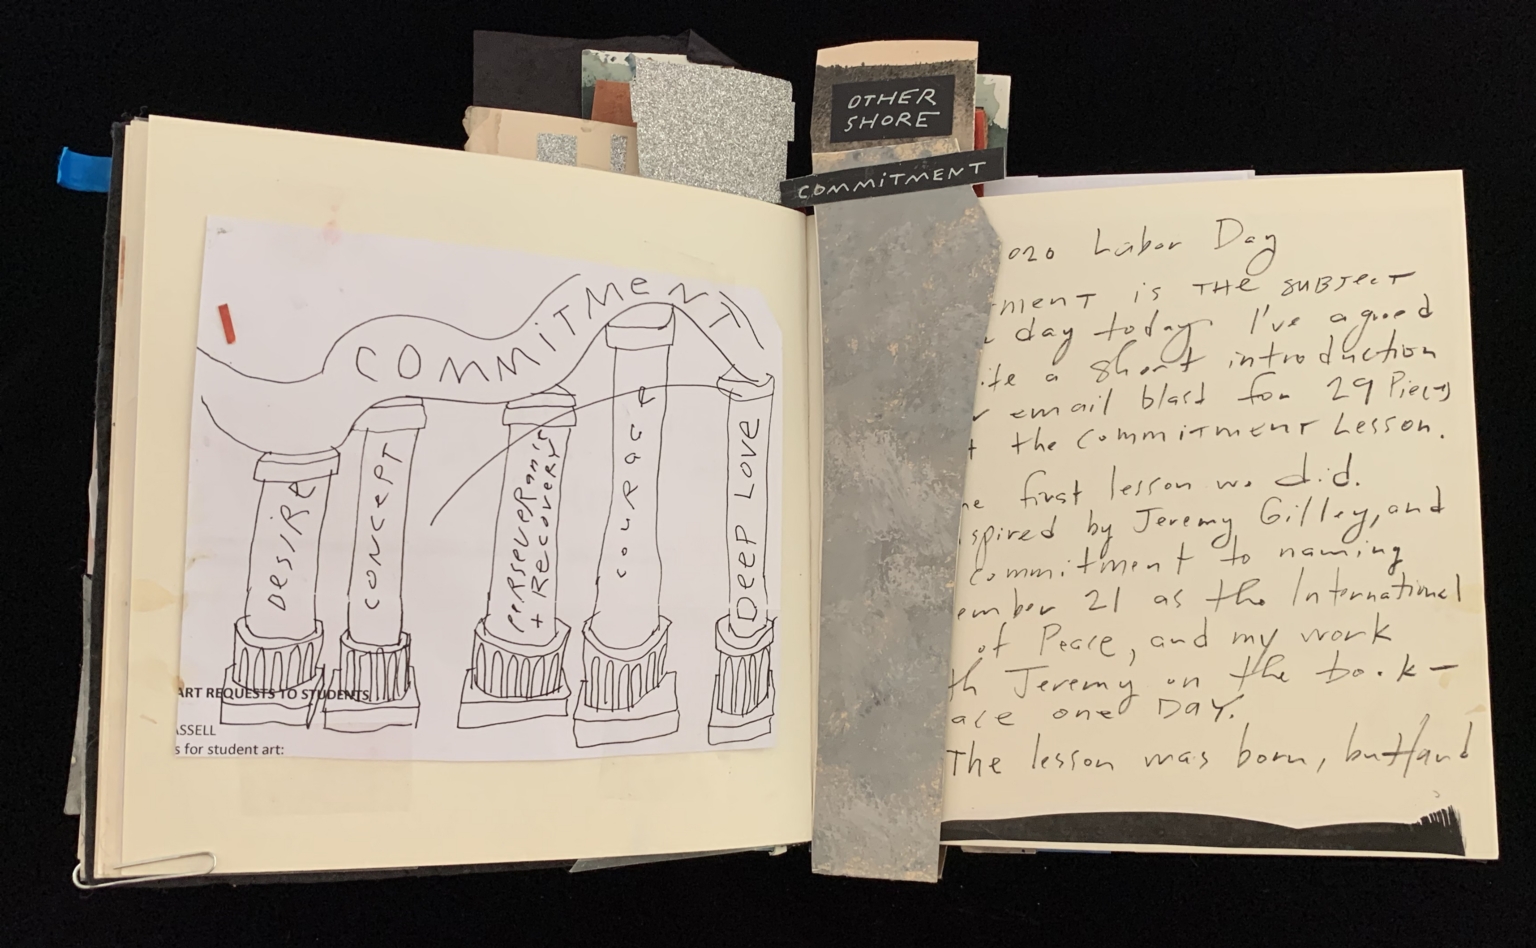 OTHER
SHORE
COMMITMENT
COMMITMENT
DESIRE
CONCEPT
PERSEVERANCE
+ RECOVERY
COURAGE
DEEP LOVE
ART REQUESTS TO STUDENTS
ASSELL
s for student art:
020 Labor Day
ment is THE SUBJECT
day today. I've agreed
ite a short introduction
r email blast for 29 Pieces
t the COMMITMENT Lesson.
he first lesson we did.
spired by Jeremy Gilley, and
commitment to naming
ember 21 as the International
of Peace, and my work
th Jeremy on the book -
ace one DAY.
The lesson was born, but